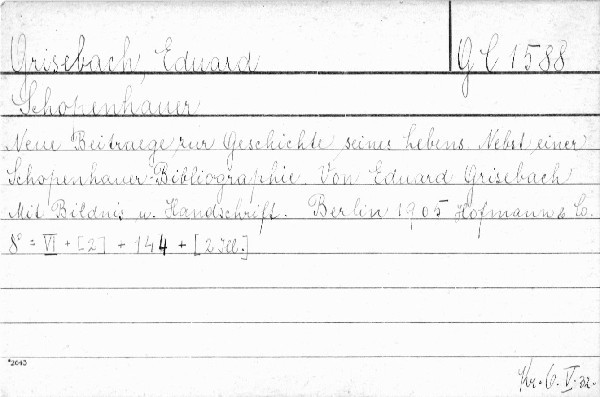 Grisebach, Eduard
G C 1588
Schopenhauer
Neue Beitraege zur Geschichte seines Lebens. Nebst einer
Schopenhauer-Bibliographie. Von Eduard Grisebach
Mit Bildnis u. Handschrift. Berlin 1905 Hofmann & Co.
8° = VI + [2] + 144 + [2 Ill.]
*2043
Kr. 6. V. 22.